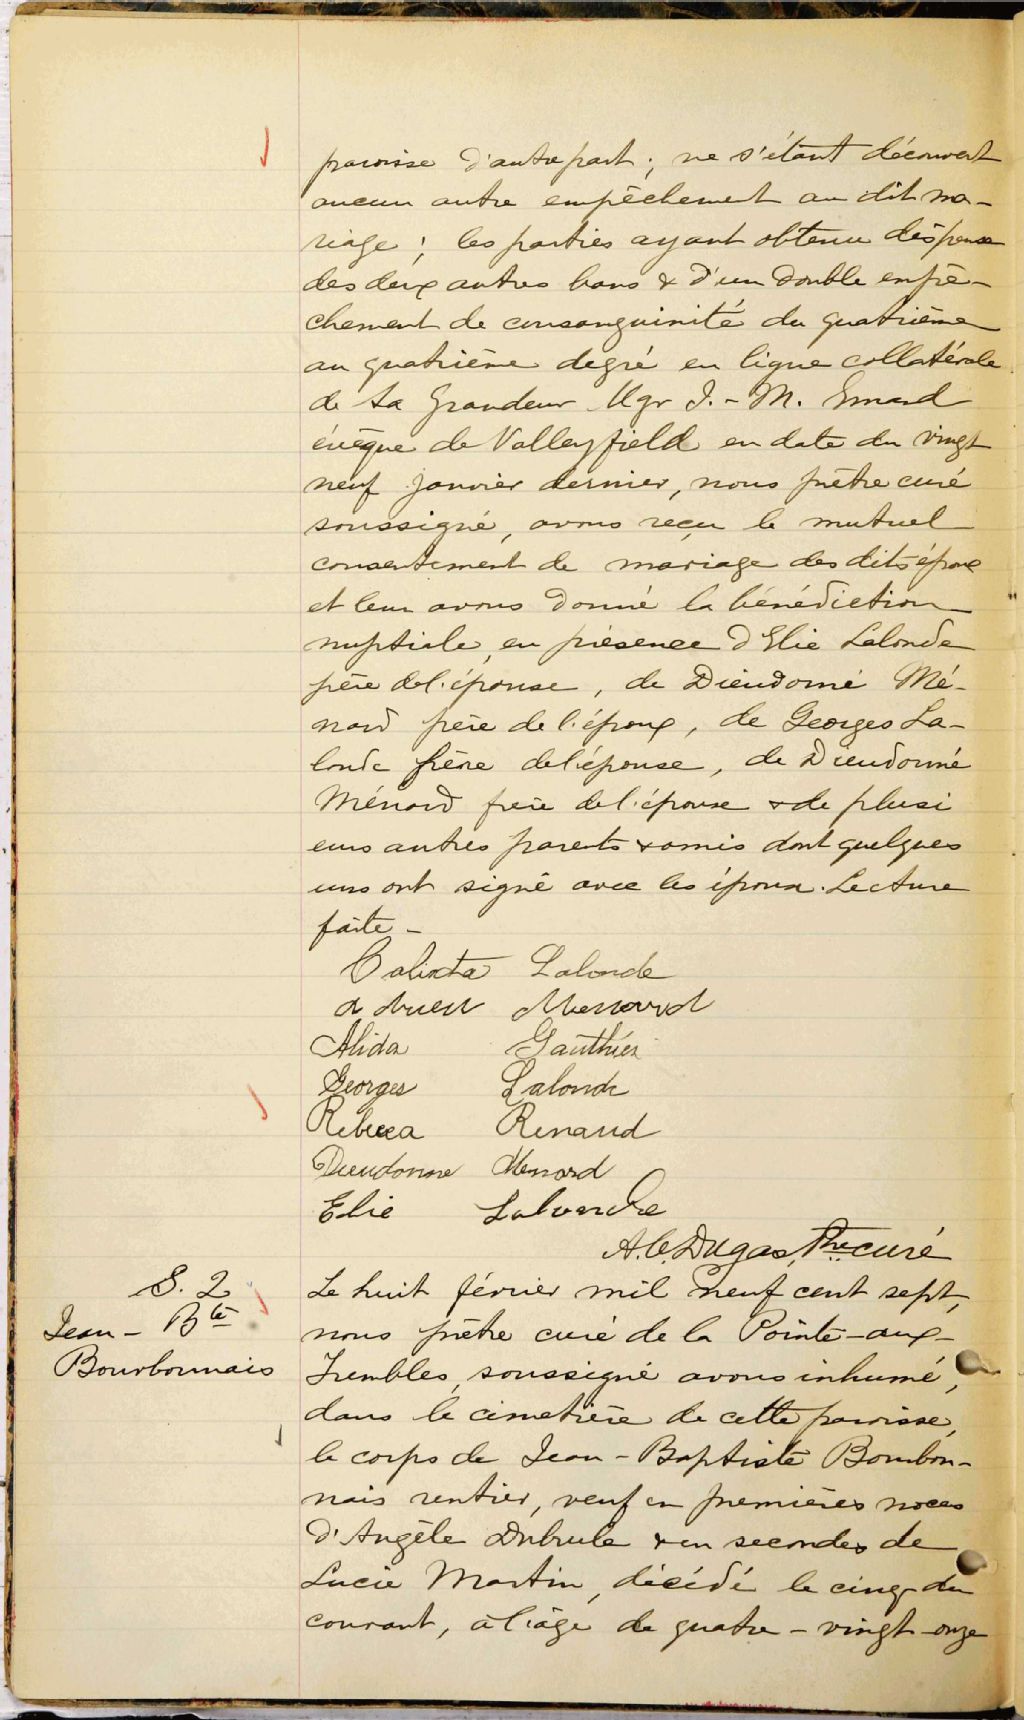 paroisse d'autre part ; ne s'étant découvert
aucun autre empêchement au dit ma-
riage ; les parties ayant obtenu dispense
des deux autres bans & d'un double empê-
chement de consanguinité du quatrième
au quatrième degré en ligne collatérale
de Sa Grandeur Mgr J.-M. Emard
évêque de Valleyfield en date du vingt
neuf janvier dernier, nous prêtre curé
soussigné, avons reçu le mutuel
consentement de mariage des dits époux
et leur avons donné la bénédiction
nuptiale, en présence d'Elie Lalonde
père de l'épouse, de Dieudonné Mé-
nard père de l'époux, de Georges La-
londe frère de l'épouse, de Dieudonné
Ménard frère de l'épouse & de plusi
eurs autres parents & amis dont quelques
uns ont signé avec les époux. Lecture
faite -
Calixta Lalonde
Menard
Alida Gauthier
Georges Lalonde
Rebecca Renaud
Dieudonne Menard
Elie Lalonde
A.C. Dugas, Ptre curé
S. 2
Jean - Bte
Bourbonnais
Le huit février mil neuf cent sept,
nous prêtre curé de la Pointe-aux-
Trembles, soussigné avons inhumé,
dans le cimetière de cette paroisse,
le corps de Jean-Baptiste Bourbon-
nais rentier, veuf en premières noces
d'Angèle Dubrule & en secondes de
Lucie Martin, décédé le cinq du
courant, à l'âge de quatre-vingt-onze